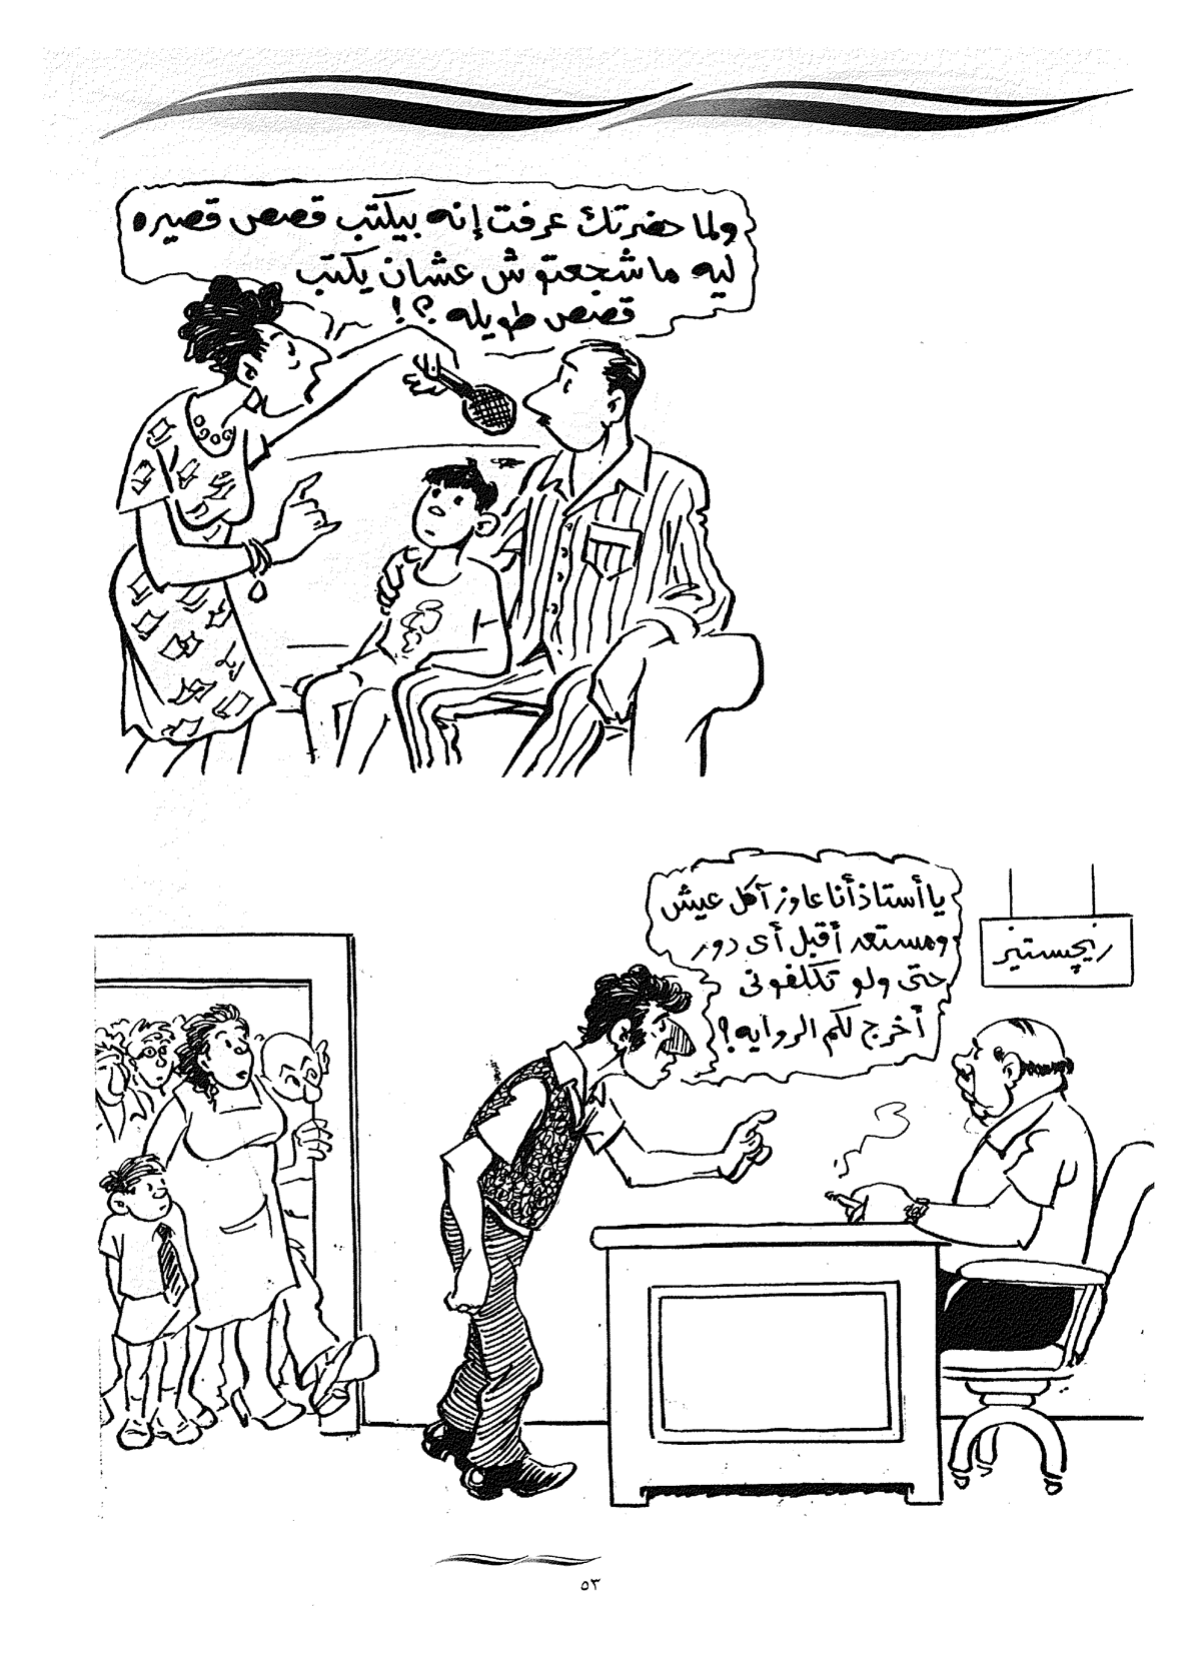 ولما حضرتك عرفت إنه بيكتب قصص قصيره
ليه ما شجعتوش عشان يكتب
قصص طويله ؟!
يا أستاذ أنا عاوز آكل عيش
ومستعد أقبل أى دور
حتى ولو تكلفونى
أخرج لكم الروايه ؟!
ريچستير
٥٣